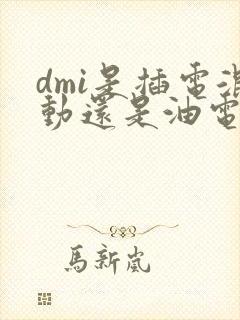 dmi是插電混
動還是油電
馬新嵐